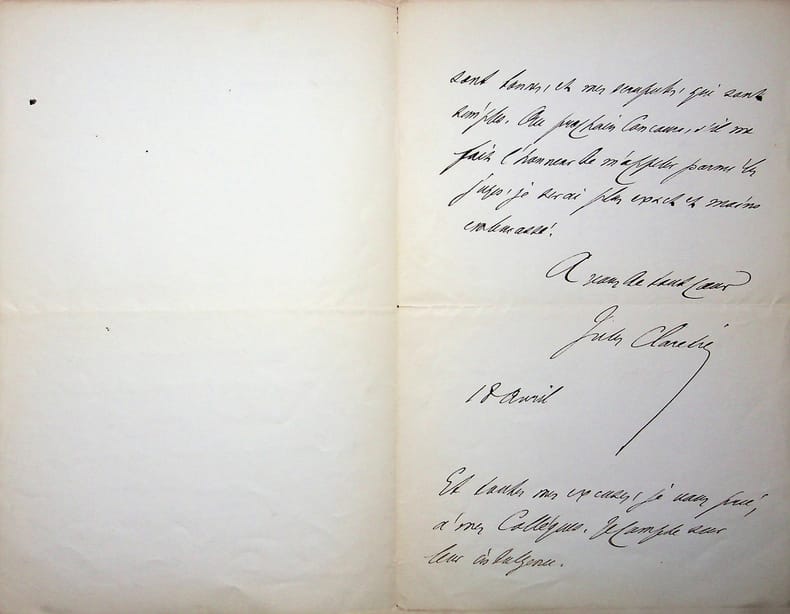 sont bonnes, et mes scrupules, qui sont
simples. Au prochain Concours, s'il me
fait l'honneur de m'appeler parmi les
juges, je serai plus exact et moins
embarassé.
A vous de tout cœur
Jules Claretie
18 Avril
Et toutes mes excuses, je vous prie,
à mes Collègues. Je compte sur
leur indulgence.